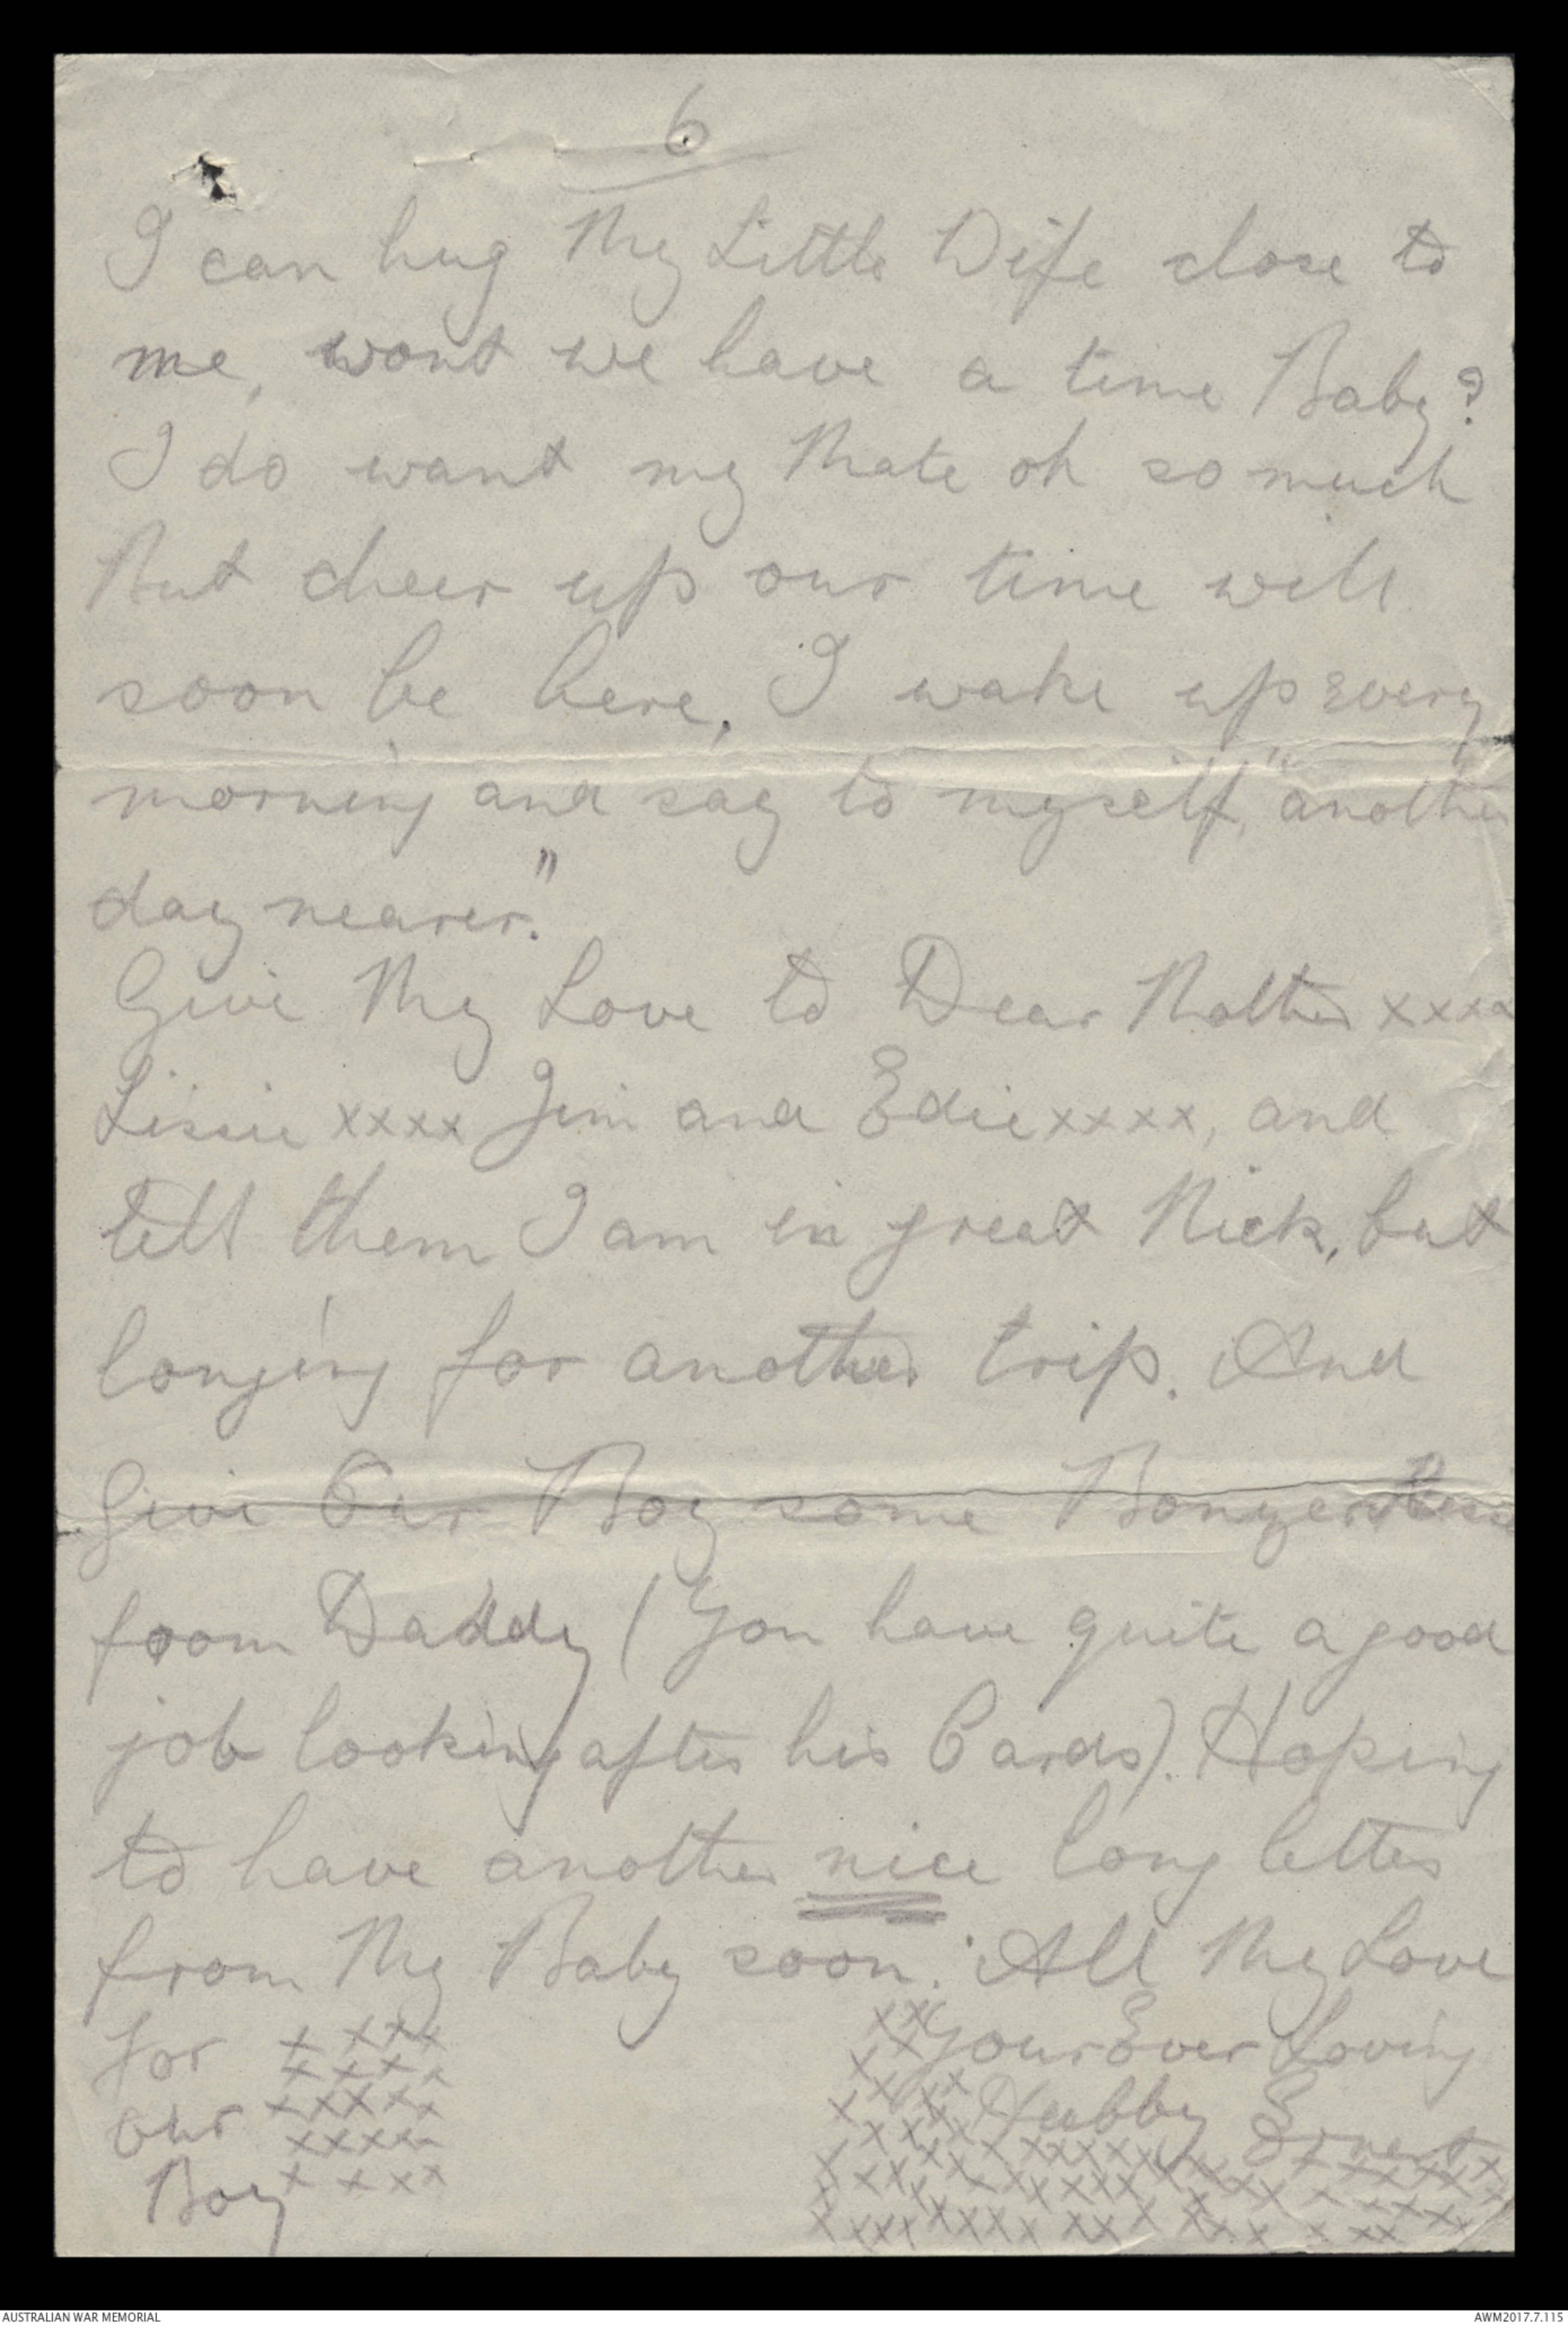 6
I can hug My Little Wife close to
me, wont we have a time Baby?
I do want my Mate oh so much
But cheer up our time will
soon be here, I wake up every
morning and say to myself, "another
day nearer."
Give My Love to Dear Mother xxxx
Lissie xxxx Jim and Edie xxxx, and
tell them I am in great Nick, but
longing for another trip. And
Give Our Boy some Bonzer
from Daddy (You have quite a good
job looking after his Cards). Hoping
to have another nice long letter
from My Baby soon. All My Love
for x xxx Your Ever Loving
our xxxxx Hubby Ernest
Boy x x x x
AUSTRALIAN WAR MEMORIAL
AWM2017.7.115